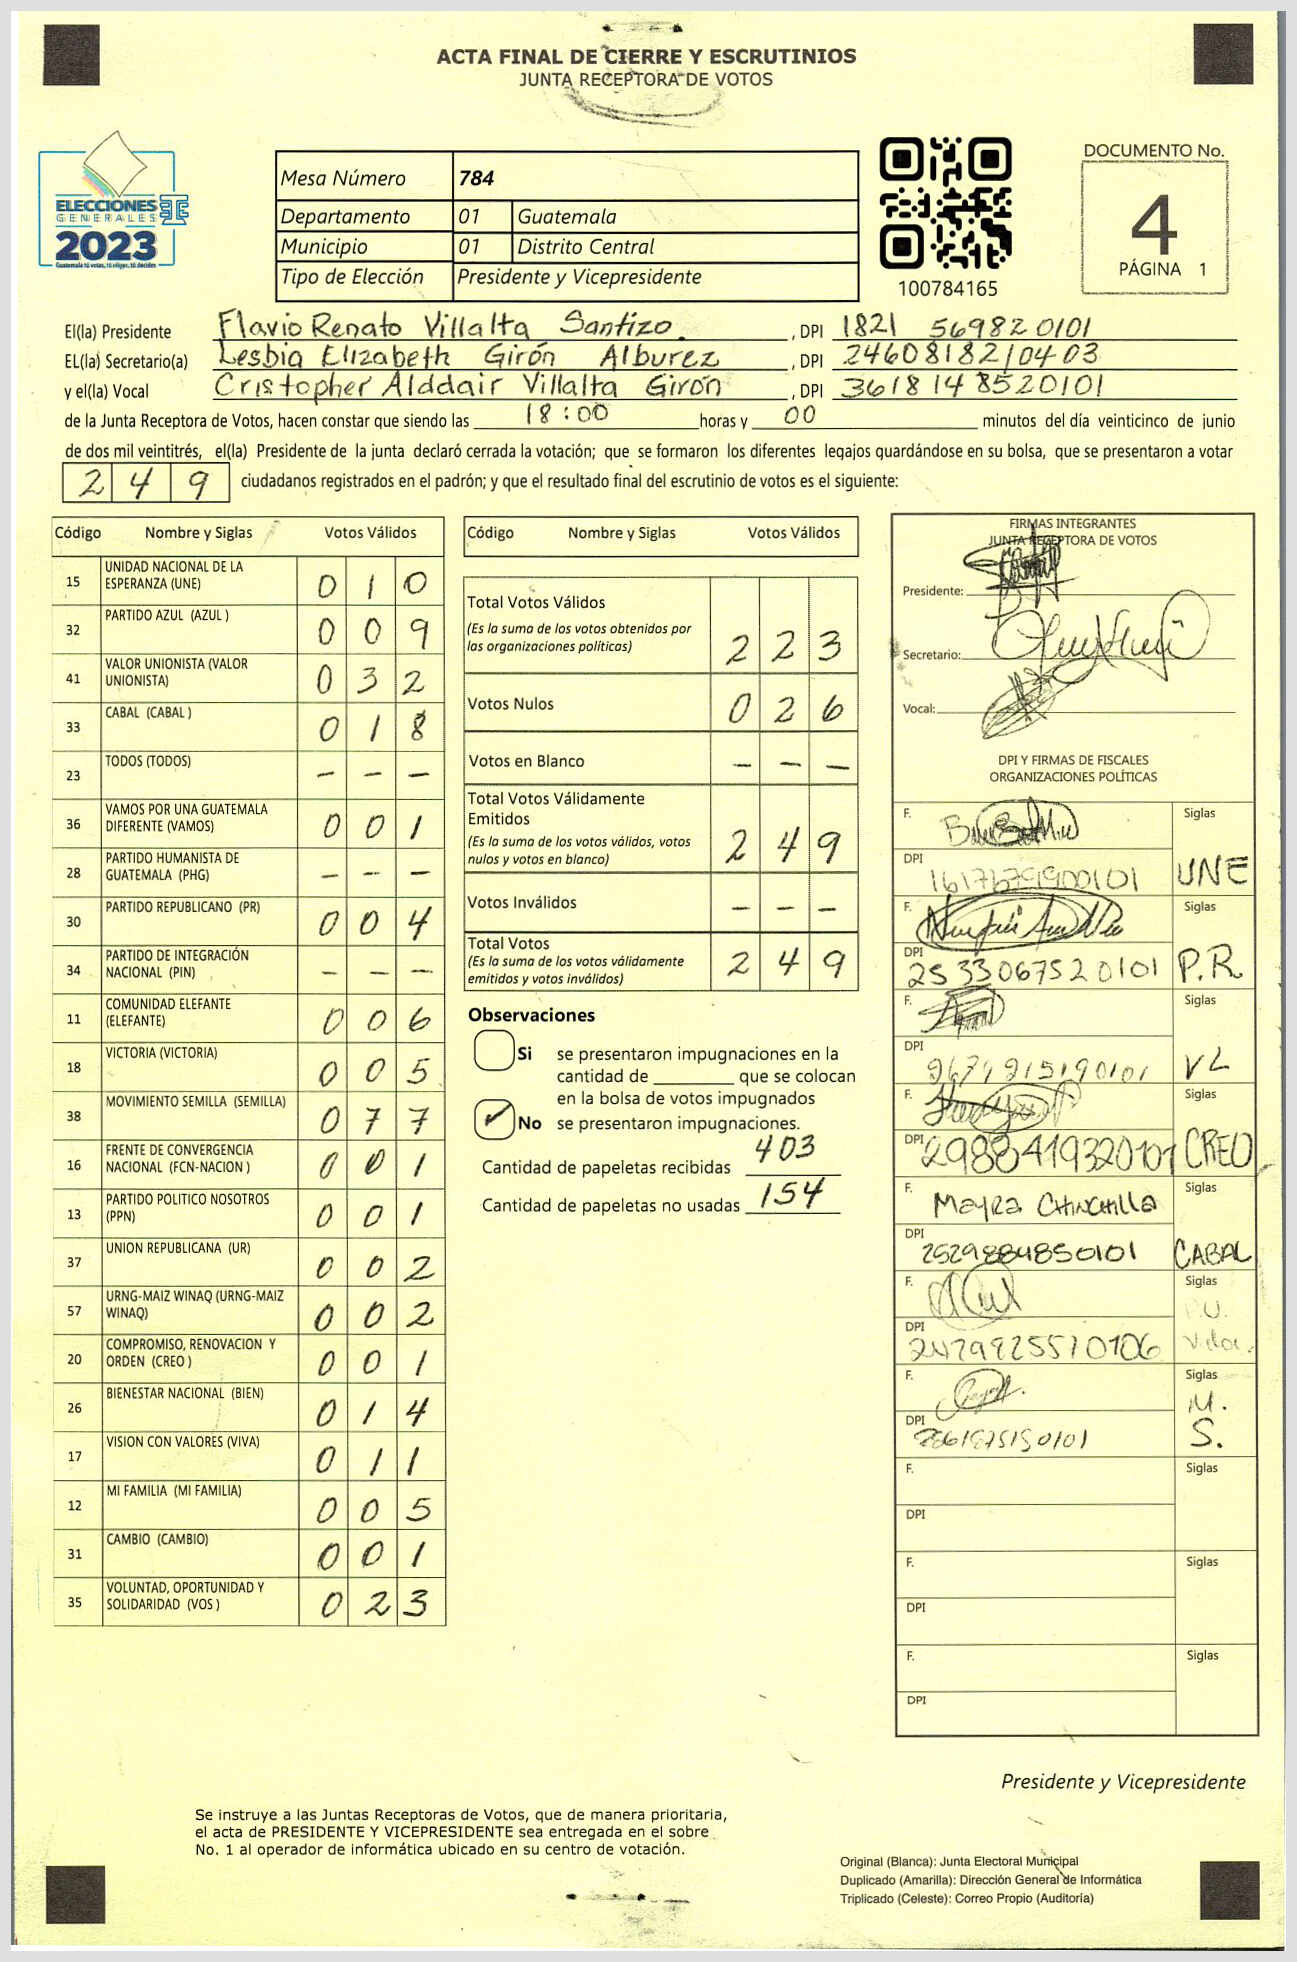 ACTA FINAL DE CIERRE Y ESCRUTINIOS
JUNTA RECEPTORA DE VOTOS
ELECCIONES
GENERALES
2023
Guatemala tú votas, tú eliges, tú decides
Mesa Número 784
Departamento 01 Guatemala
Municipio 01 Distrito Central
Tipo de Elección Presidente y Vicepresidente
100784165
DOCUMENTO No.
4
PÁGINA 1
El(la) Presidente Flavio Renato Villalta Santizo , DPI 1821 56982 0101
EL(la) Secretario(a) Lesbia Elizabeth Girón Alburez , DPI 24608182 0403
y el(la) Vocal Cristopher Alddair Villalta Girón , DPI 3618148520101
de la Junta Receptora de Votos, hacen constar que siendo las 18:00 horas y 00 minutos del día veinticinco de junio
de dos mil veintitrés, el(la) Presidente de la junta declaró cerrada la votación; que se formaron los diferentes legajos guardándose en su bolsa, que se presentaron a votar
2 4 9 ciudadanos registrados en el padrón; y que el resultado final del escrutinio de votos es el siguiente:
Código Nombre y Siglas Votos Válidos
15 UNIDAD NACIONAL DE LA ESPERANZA (UNE) 0 1 0
32 PARTIDO AZUL (AZUL ) 0 0 9
41 VALOR UNIONISTA (VALOR UNIONISTA) 0 3 2
33 CABAL (CABAL ) 0 1 8
23 TODOS (TODOS) – – –
36 VAMOS POR UNA GUATEMALA DIFERENTE (VAMOS) 0 0 1
28 PARTIDO HUMANISTA DE GUATEMALA (PHG) – – –
30 PARTIDO REPUBLICANO (PR) 0 0 4
34 PARTIDO DE INTEGRACIÓN NACIONAL (PIN) – – –
11 COMUNIDAD ELEFANTE (ELEFANTE) 0 0 6
18 VICTORIA (VICTORIA) 0 0 5
38 MOVIMIENTO SEMILLA (SEMILLA) 0 7 7
16 FRENTE DE CONVERGENCIA NACIONAL (FCN-NACION ) 0 0 1
13 PARTIDO POLITICO NOSOTROS (PPN) 0 0 1
37 UNION REPUBLICANA (UR) 0 0 2
57 URNG-MAIZ WINAQ (URNG-MAIZ WINAQ) 0 0 2
20 COMPROMISO, RENOVACION Y ORDEN (CREO ) 0 0 1
26 BIENESTAR NACIONAL (BIEN) 0 1 4
17 VISION CON VALORES (VIVA) 0 1 1
12 MI FAMILIA (MI FAMILIA) 0 0 5
31 CAMBIO (CAMBIO) 0 0 1
35 VOLUNTAD, OPORTUNIDAD Y SOLIDARIDAD (VOS ) 0 2 3
Código Nombre y Siglas Votos Válidos
Total Votos Válidos 2 2 3
(Es la suma de los votos obtenidos por
las organizaciones políticas)
Votos Nulos 0 2 6
Votos en Blanco – – –
Total Votos Válidamente
Emitidos 2 4 9
(Es la suma de los votos válidos, votos
nulos y votos en blanco)
Votos Inválidos – – –
Total Votos 2 4 9
(Es la suma de los votos válidamente
emitidos y votos inválidos)
Observaciones
Si se presentaron impugnaciones en la
cantidad de ________ que se colocan
en la bolsa de votos impugnados
✓ No se presentaron impugnaciones.
Cantidad de papeletas recibidas 403
Cantidad de papeletas no usadas 154
FIRMAS INTEGRANTES
JUNTA RECEPTORA DE VOTOS
Presidente:
Secretario:
Vocal:
DPI Y FIRMAS DE FISCALES
ORGANIZACIONES POLÍTICAS
F. Siglas
DPI UNE
F. Siglas
DPI 2533067520101 P.R
F. Siglas
DPI VL
F. Siglas
DPI 2988419320101 CREO
F. Mayra Chinchilla Siglas
DPI 2529884850101 CABAL
F. Siglas
P.U.
DPI 2479825570106
F. Siglas
M.
DPI S.
F. Siglas
DPI
F. Siglas
DPI
F. Siglas
DPI
Presidente y Vicepresidente
Se instruye a las Juntas Receptoras de Votos, que de manera prioritaria,
el acta de PRESIDENTE Y VICEPRESIDENTE sea entregada en el sobre
No. 1 al operador de informática ubicado en su centro de votación.
Original (Blanca): Junta Electoral Municipal
Duplicado (Amarilla): Dirección General de Informática
Triplicado (Celeste): Correo Propio (Auditoría)